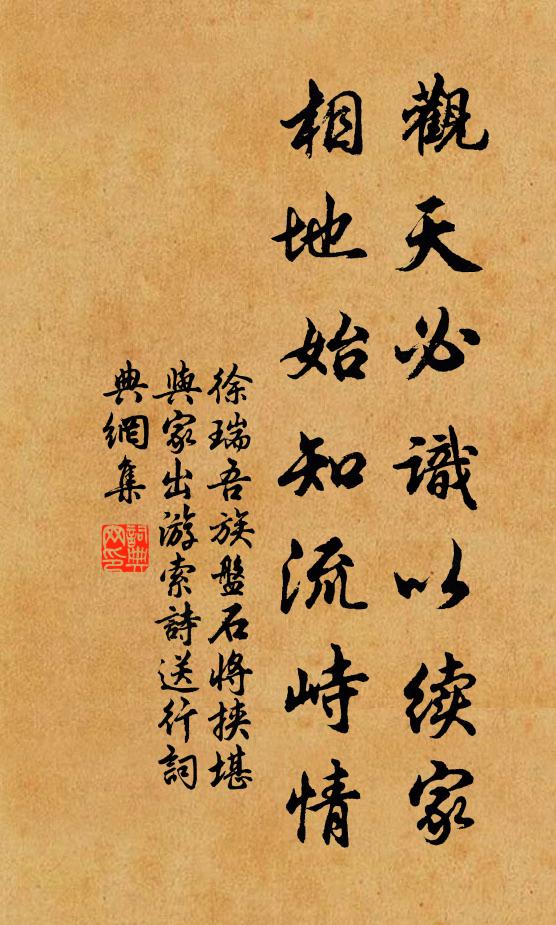 觀天必識以续家
相地始知流峙情
徐瑞吾族盤石將挾堪
與家出游索詩送行詞
典網集
詞典
网印